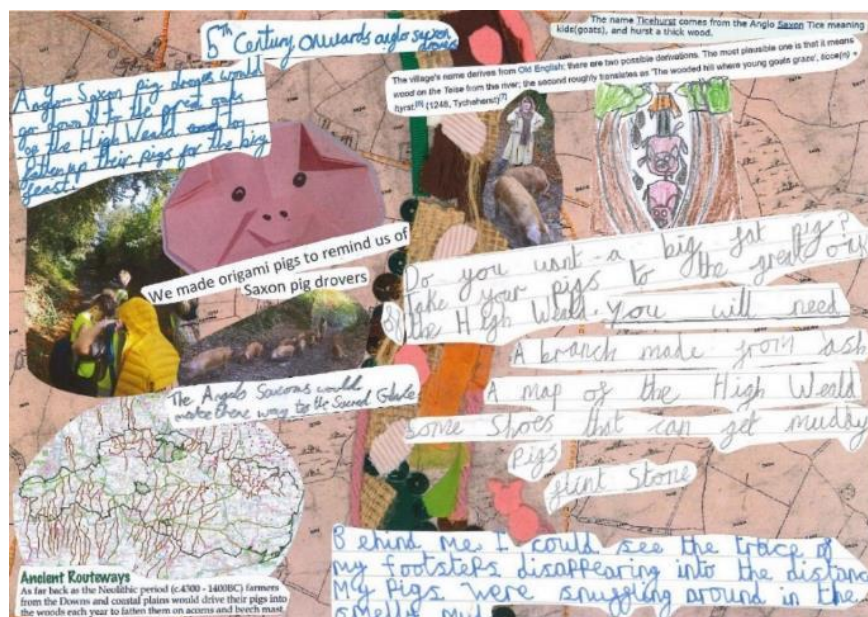 5th Century onwards anglo saxon
drovers
Anglo-Saxon pig drovers would
go down to the great oaks
on the High Weald to
fatten up their pigs for the big
feast.
The name Ticehurst comes from the Anglo Saxon Tice meaning
kids(goats), and hurst a thick wood.
The village's name derives from Old English: there are two possible derivations. The most plausible one is that it means
wood on the Teise from the river; the second roughly translates as 'The wooded hill where young goats graze',
hyrst.[6] (1248, Tycheherst)[7]
We made origami pigs to remind us of
Saxon pig drovers
The Anglo Saxons would
make there way to the Sacred Glade
Do you want a big fat pig?
Take your pigs to the great oaks
of the High Weald. You will need
A branch made from ash
A map of the High Weald
some shoes that can get muddy
pigs
flint Stone
Ancient Routeways
As far back as the Neolithic period (c.4300 - 1400BC) farmers
from the Downs and coastal plains would drive their pigs into
the woods each year to fatten them on acorns and beech mast
Behind me I could see the trace of
my footsteps disappearing into the distance
My pigs were snuggling around in the
smelly mud